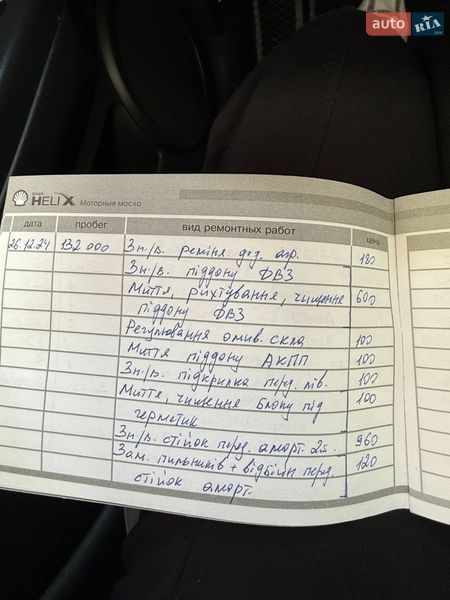 auto RIA .com
Shell
HELIX Моторные масло
дата пробег вид ремонтных работ цена
26.12.24 132 000 Зн./в. ременя дод. агр. 180
Зн./в. піддону ФВЗ
Миття, рихтування, чищення 600
піддону ФВЗ
Регулювання омив. скла 100
Миття піддону АКПП 100
Зн./в. підкрилка перд. лів. 100
Миття, чищення блоку під 100
герметик
Зн./в. стійок перд. аморт. 2ш. 960
Зам. пильників + відбійн. перд. 120
стійок аморт.